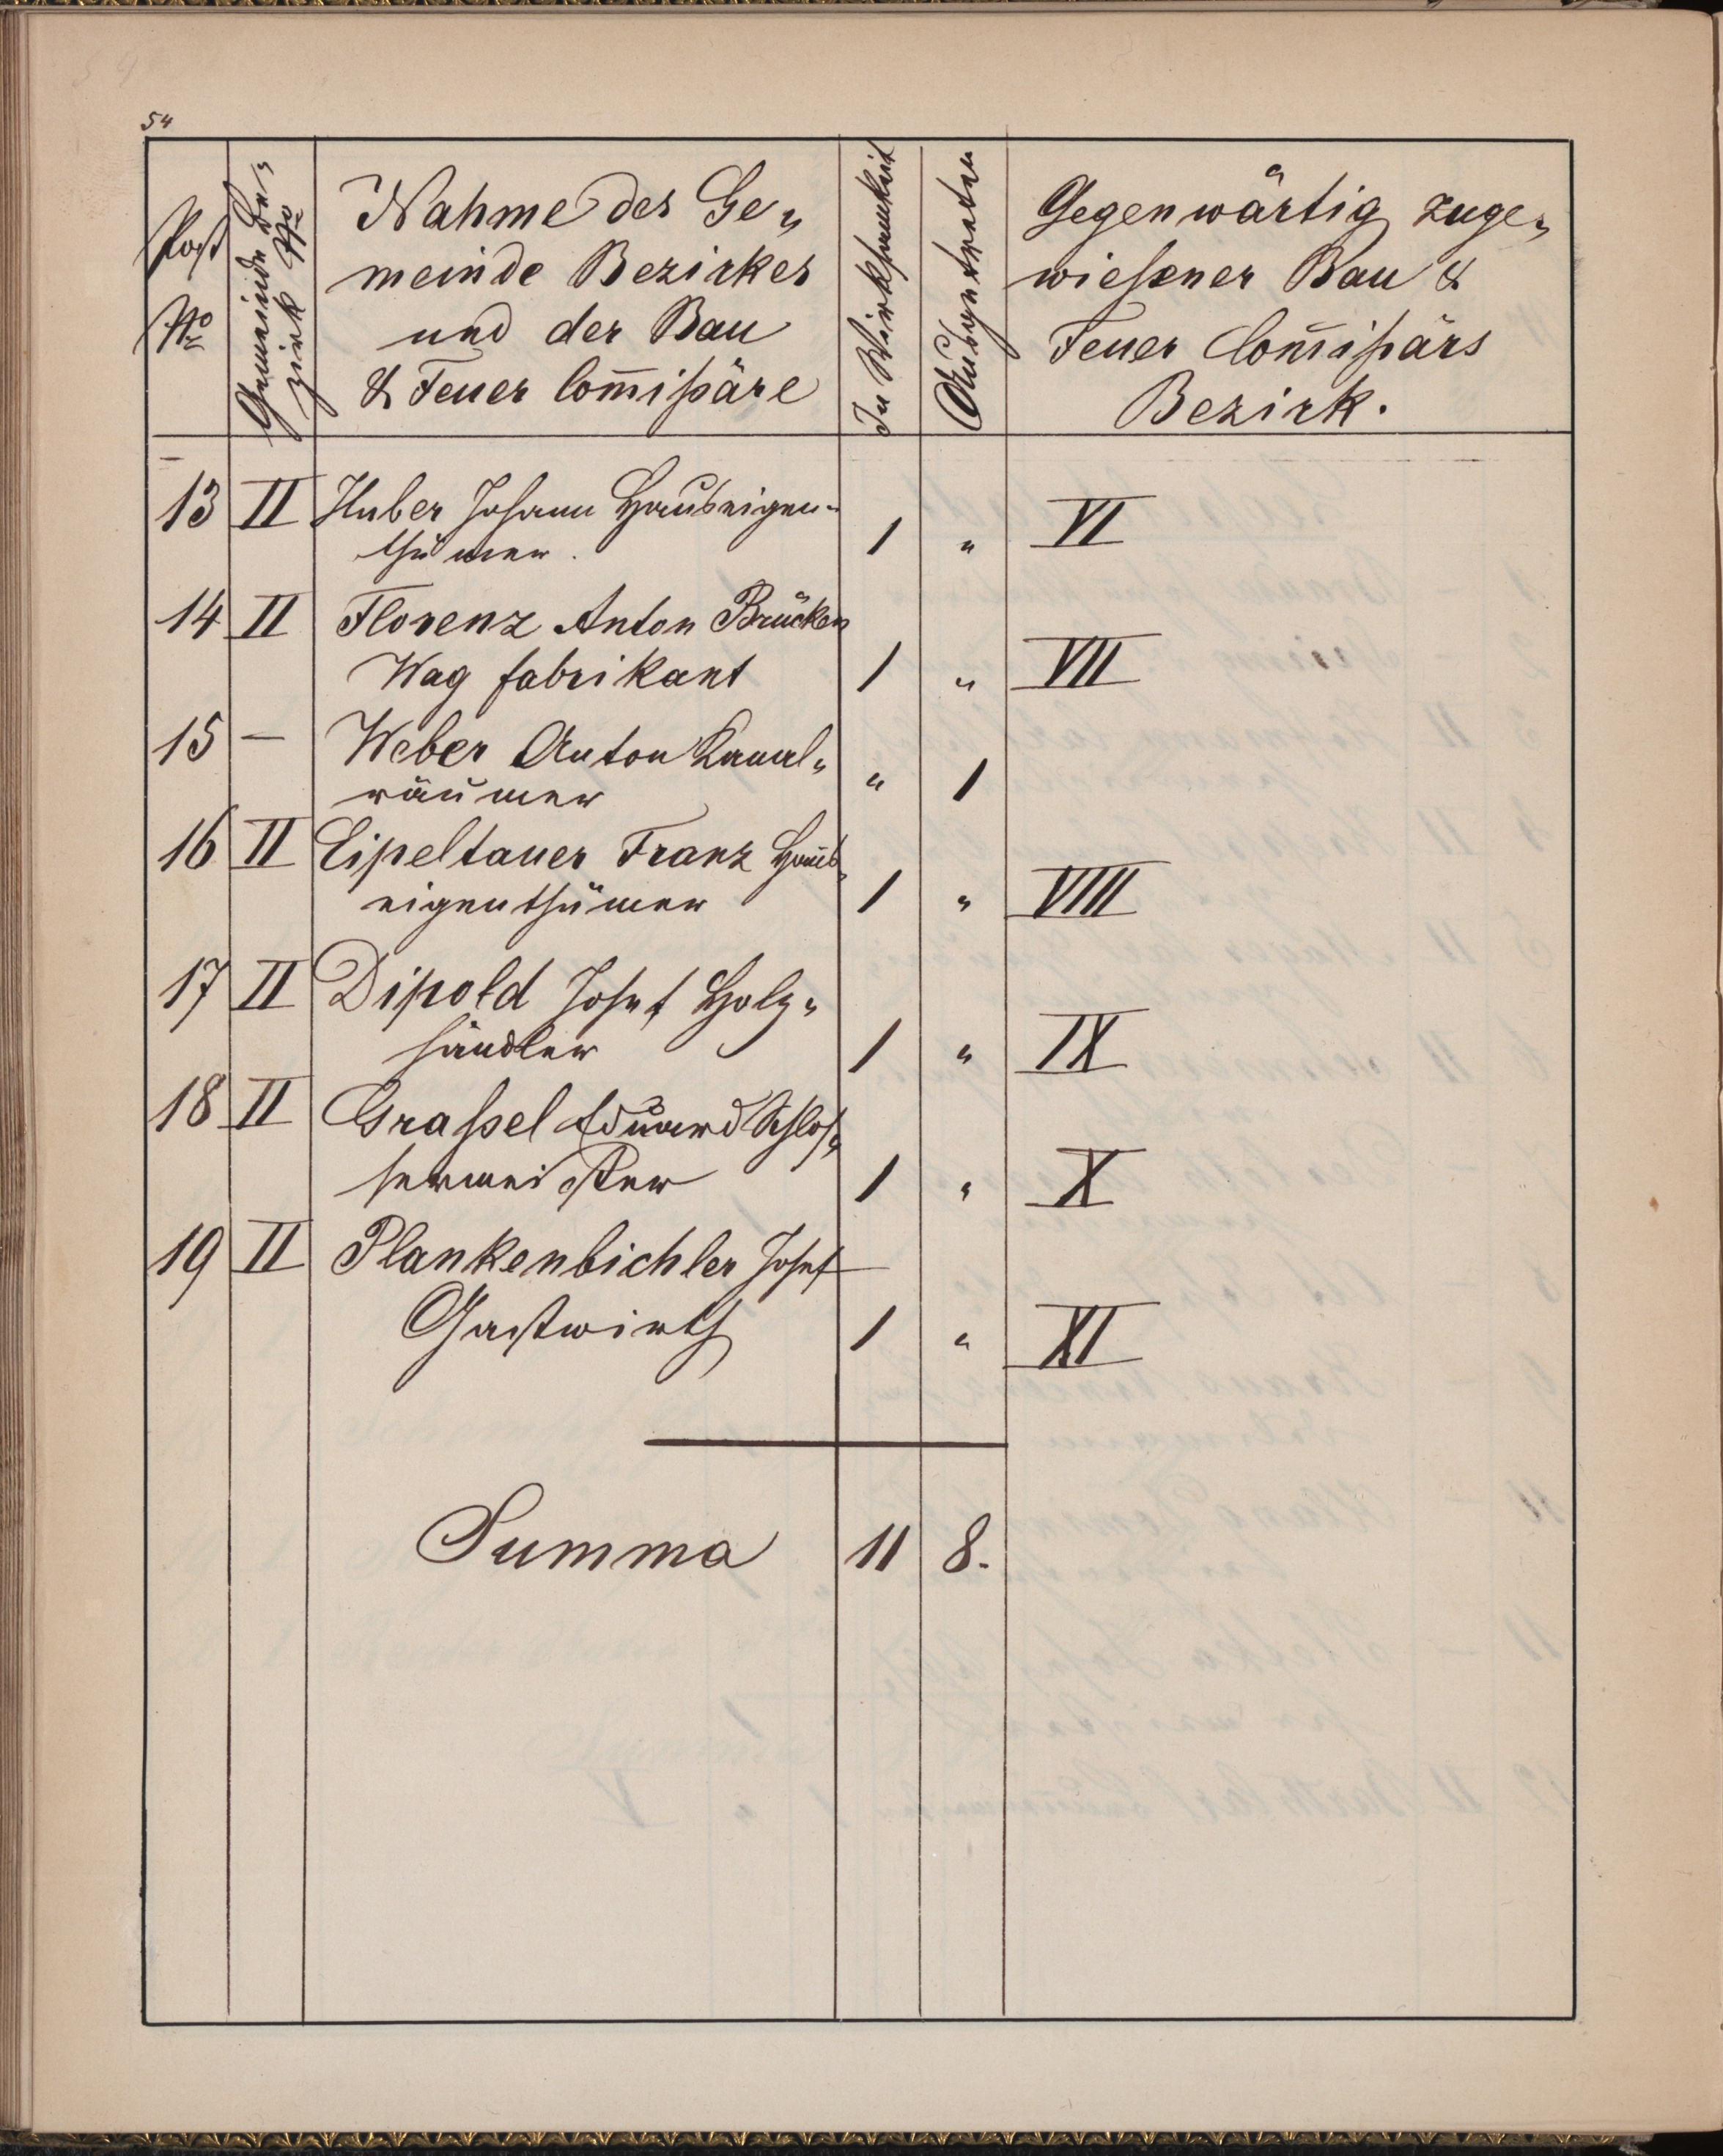 54
Post
No
Gemeinde Be„
zirk No
Nahme des Ge„
meinde Bezirkes
und der Bau
& Feuer Com̅ißäre
In Wirksamkeit
Ausgetreten
Gegenwärtig zuge„
wiesener Bau &
Feuer Com̅ißärs
Bezirk.
13 II Huber Johann Hauseigen„
thümer. 1 „ VI
14 II Florenz Anton Brücken
Wag fabrikant 1 „ VII
15 — Weber Anton Kanal„
räumer „ 1
16 II Eipeltauer Franz Haus„
eigenthümer 1 „ VIII
17 II Dipold Josef Holz„
händler 1 „ IX
18 II Graßel Eduard Schlos„
sermeister 1 „ X
19 II Plankenbichler Josef
Gastwirth 1 „ XI
Summa 11 8.